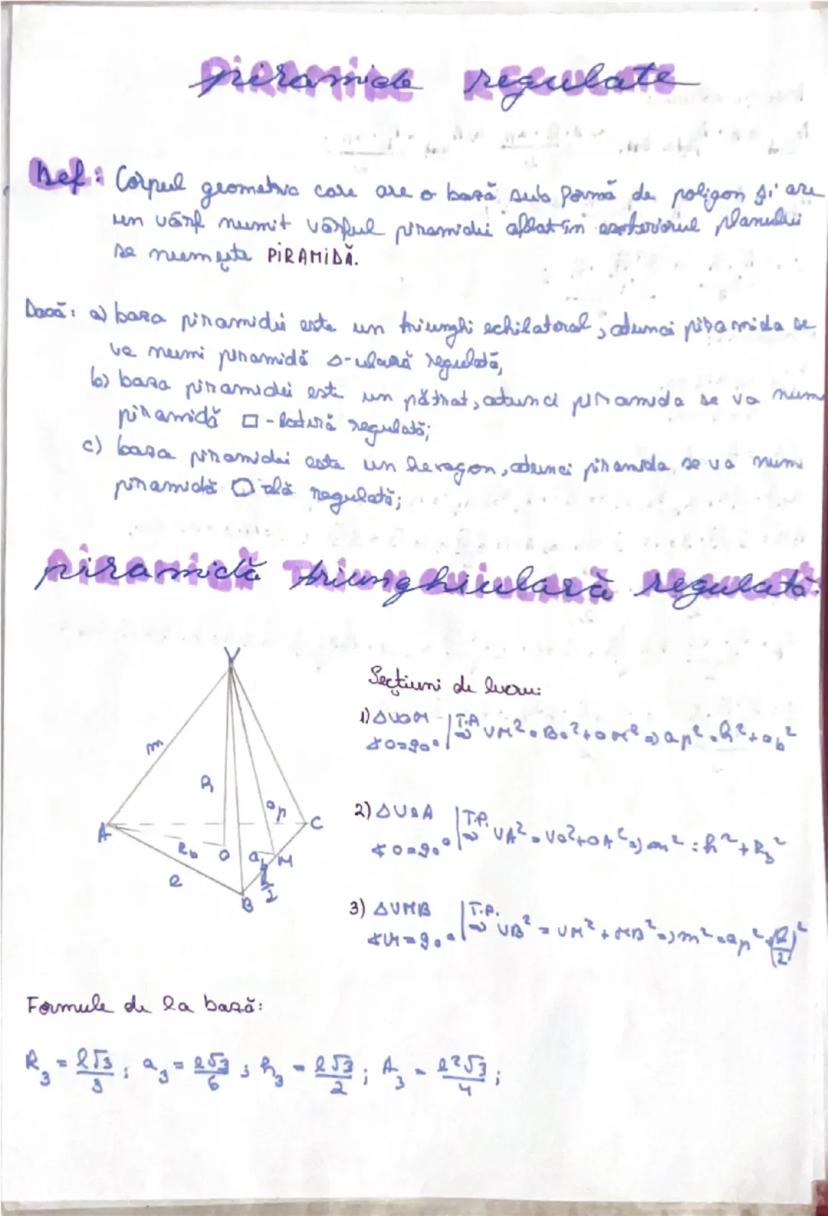 piramide regulate
Def: Corpul geometric care are o bază sub formă de poligon și are
un vârf numit vârful piramidei aflat în exteriorul planului
se numește PIRAMIDĂ.
Dacă: a) baza piramidei este un triunghi echilateral, atunci piramida se
va numi piramidă △-ulară regulată;
b) baza piramidei este un pătrat, atunci piramida se va num
piramidă □-lateră regulată;
c) baza piramidei este un hexagon, atunci piramida se va numi
piramidă ⬡ală regulată;
piramidă triunghiulară regulată.
V
Secțiuni de lucru:
1) △VOM | T.P.
∢O=90° ⇒ VM² = BO² + OM² ⇒ ap² = h² + ab²
m
h
ap
2) △VOA | T.P.
∢O=90° ⇒ VA² = VO² + OA² ⇒ m² = h² + R₃²
A
C
Rb
O
ab
M
l
l/2
B
3) △VMB | T.P.
∢M=90° ⇒ VB² = VM² + MB² ⇒ m² = ap² + (l/2)²
Formule de la bază:
R₃ = l√3/3; a₃ = l√3/6; h₃ = l√3/2; A₃ = l²√3/4;